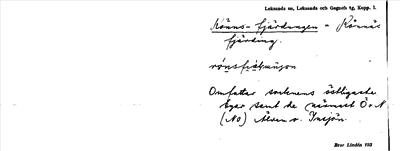 Leksands sn, Leksands och Gagnefs tg, Kopp. l.
Rönns-fjärdingen = Rönnäs
fjärding.
Omfattar socknens östligaste
byar samt de närmast Ö o N
(NO) Älven o. Insjön.
Bror Lindén 193